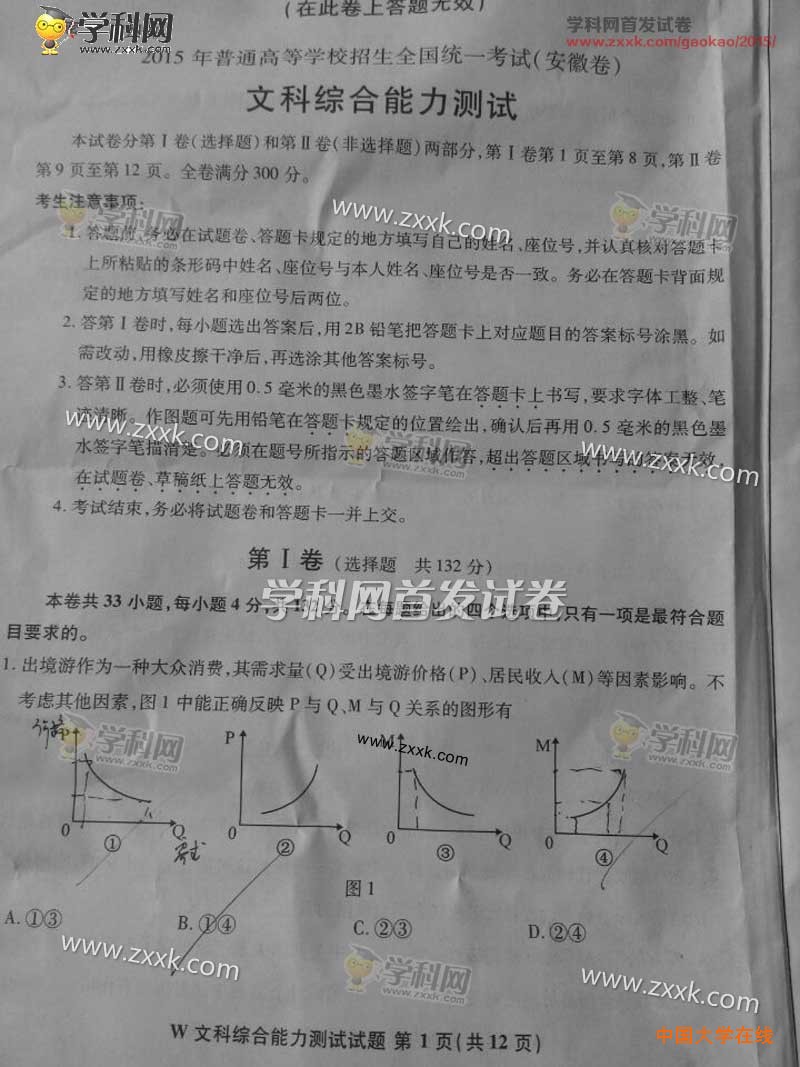 (在此卷上答题无效)
学科网
学科网首发试卷
www.zxxk.com/gaokao/2015/
2015年普通高等学校招生全国统一考试(安徽卷)
文科综合能力测试
本试卷分第Ⅰ卷(选择题)和第Ⅱ卷(非选择题)两部分,第Ⅰ卷第1页至第8页,第Ⅱ卷
第9页至第12页。全卷满分300分。
考生注意事项:
学科网
www.zxxk.com
学科网
1. 答题前,务必在试题卷、答题卡规定的地方填写自己的姓名、座位号,并认真核对答题卡
上所粘贴的条形码中姓名、座位号与本人姓名、座位号是否一致。务必在答题卡背面规
定的地方填写姓名和座位号后两位。
2. 答第Ⅰ卷时,每小题选出答案后,用2B铅笔把答题卡上对应题目的答案标号涂黑。如
需改动,用橡皮擦干净后,再选涂其他答案标号。
3. 答第Ⅱ卷时,必须使用0.5毫米的黑色墨水签字笔在答题卡上书写,要求字体工整、笔
迹清晰。作图题可先用铅笔在答题卡规定的位置绘出,确认后再用0.5毫米的黑色墨
www.zxxk.com
学科网
www.zxxk.com
水签字笔描清楚。必须在题号所指示的答题区域作答,超出答题区域书写的答案无效,
在试题卷、草稿纸上答题无效。
4. 考试结束,务必将试题卷和答题卡一并上交。
第Ⅰ卷(选择题 共132分)
学科网首发试卷
本卷共33小题,每小题4分,共132分。在每题给出的四个选项中,只有一项是最符合题
目要求的。
1. 出境游作为一种大众消费,其需求量(Q)受出境游价格(P)、居民收入(M)等因素影响。不
考虑其他因素,图1中能正确反映P与Q、M与Q关系的图形有
学科网
www.zxxk.com
学科网
P P M M
0 Q 0 Q 0 Q 0 Q
① ② ③ ④
图1
A. ①③ B. ①④ C. ②③ D. ②④
www.zxxk.com
学科网
www.zxxk.com
W 文科综合能力测试试题 第1页(共12页)
中国大学在线